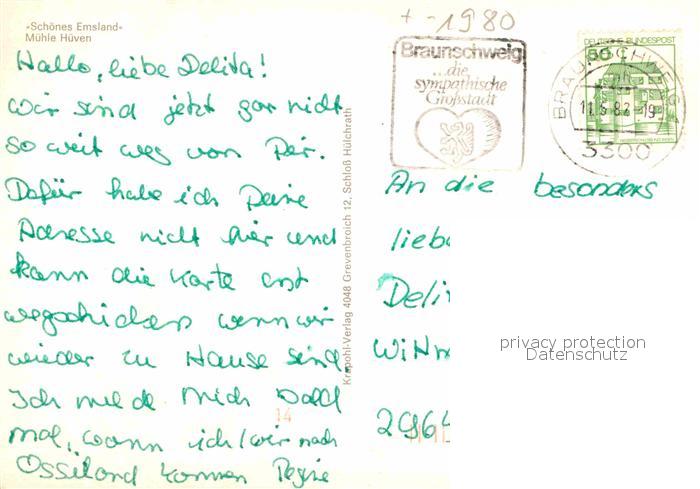 «Schönes Emsland»
Mühle Hüven
Hallo, liebe Delita!
Wir sind jetzt gar nicht
so weit weg von Dir.
Dafür habe ich Deine
Adresse nicht hier und
kann die Karte erst
wegschicken wenn wir
wieder zu Hause sind.
Ich melde mich bald
mal, wann ich/wir nach
Ossiland kommen
Krapohl-Verlag 4048 Grevenbroich 12, Schloß Hülchrath
14
+ -1980
Braunschweig
...die
sympathische
Großstadt
DEUTSCHE BUNDESPOST
50
BRAUNSCHWEIG
-19
3300
An die besonders
liebe
Deli
Wi
2964
privacy protection
Datenschutz